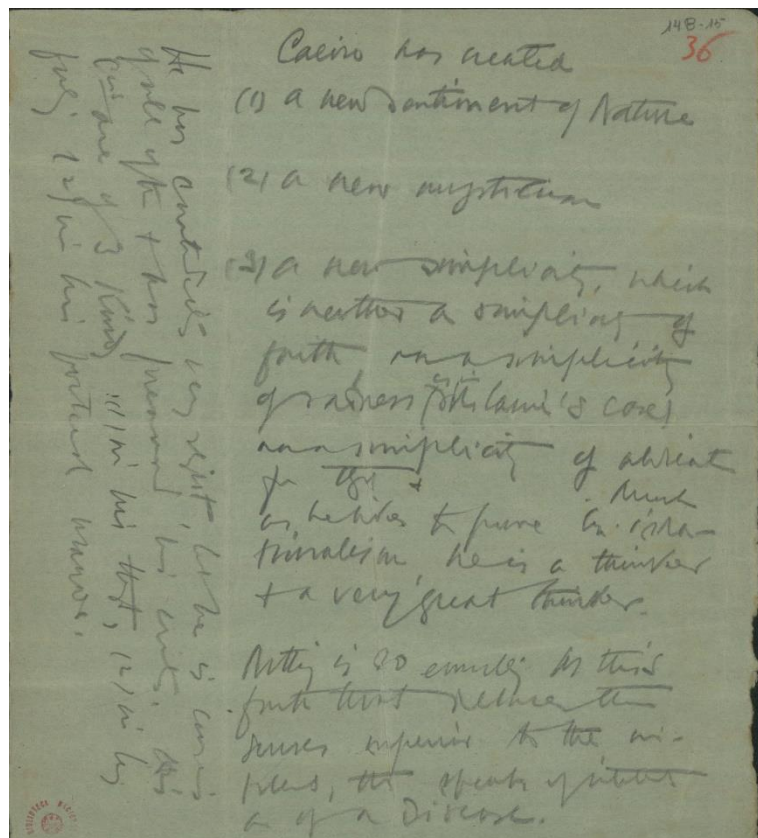 148-15
36
Caeiro has created
(1) a new sentiment of Nature
(2) a new mysticism
(3) a new simplicity, which
is neither a simplicity of
faith, nor a simplicity
of sadness (as in case)
nor a simplicity of
for . Much
as he likes to prove his irra-
tionalism he is a thinker
& a very great thinker.
Nothing is so ennobling as this
faith that declares the
senses superior to the in-
tellect, that speaks of intellect
as of a disease.
He has contradicted very slight, but he is conscious
of all of them & has his critics. His
are of 3 kinds: (1) in his , (2) in his
feeling, (3) in his poetical manner.
BIBLIOTECA NACIONAL